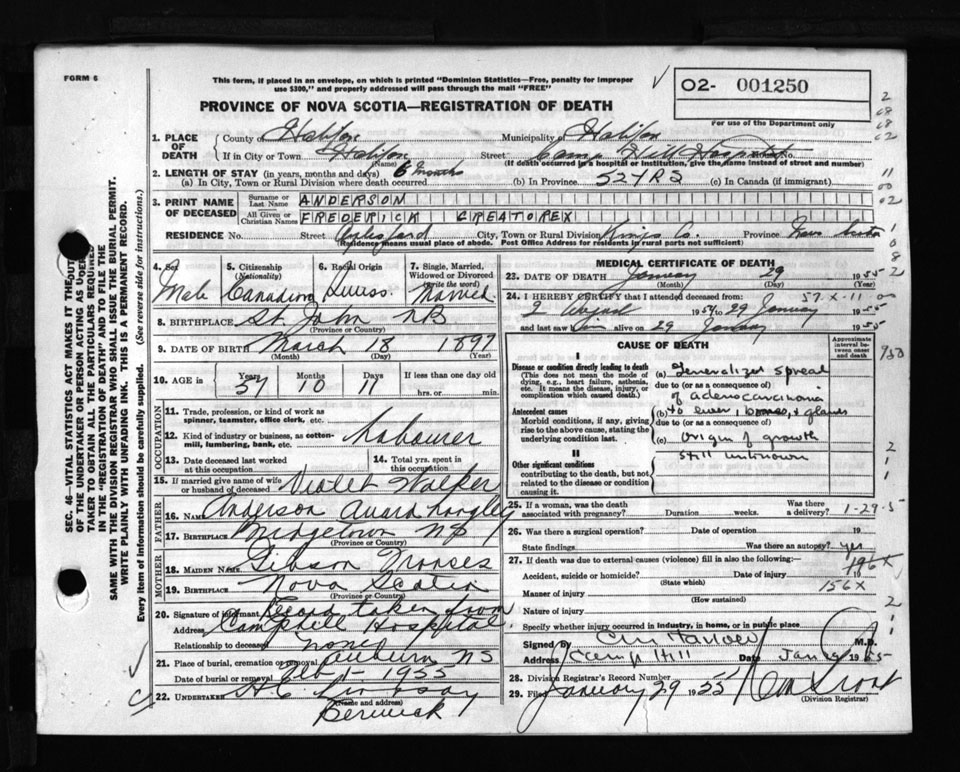 FORM 6
This form, if placed in an envelope, on which is printed "Dominion Statistics—Free, penalty for improper
use $300," and properly addressed will pass through the mail "FREE"
PROVINCE OF NOVA SCOTIA—REGISTRATION OF DEATH
O2- 001250
For use of the Department only
SEC. 46—VITAL STATISTICS ACT MAKES IT THE DUTY
OF THE UNDERTAKER OR PERSON ACTING AS UNDER-
TAKER TO OBTAIN ALL THE PARTICULARS REQUIRED
IN THE "REGISTRATION OF DEATH" AND TO FILE THE
SAME WITH THE DIVISION REGISTRAR WHO SHALL ISSUE THE BURIAL PERMIT.
WRITE PLAINLY WITH UNFADING INK. THIS IS A PERMANENT RECORD.
Every item of information should be carefully supplied. (See reverse side for instructions.)
1. PLACE OF DEATH County of Halifax Municipality of Halifax
If in City or Town Halifax (Name) Street Camp Hill Hospital No.
(If death occurred in a hospital or institution, give the name instead of street and number)
2. LENGTH OF STAY (in years, months and days) 6 months
(a) In City, Town or Rural Division where death occurred (b) In Province 52 YRS (c) In Canada (if immigrant)
3. PRINT NAME OF DECEASED Surname or Last Name ANDERSON
All Given or Christian Names FREDERICK CREATOREX
RESIDENCE No. Street Aylesford City, Town or Rural Division Kings Co. Province Nova Scotia
(Residence means usual place of abode. Post Office Address for residents in rural parts not sufficient)
4. Sex Male
5. Citizenship (Nationality) Canadian
6. Racial Origin Swiss
7. Single, Married, Widowed or Divorced (Write the word) Married
8. BIRTHPLACE St. John NB
(Province or Country)
9. DATE OF BIRTH March 18 1897
(Month) (Day) (Year)
10. AGE in Years 57 Months 10 Days 11 If less than one day old hrs. or min.
OCCUPATION
11. Trade, profession, or kind of work as spinner, teamster, office clerk, etc.
12. Kind of industry or business, as cotton-mill, lumbering, bank, etc. Labourer
13. Date deceased last worked at this occupation
14. Total yrs. spent in this occupation
15. If married give name of wife or husband of deceased Violet Walker
FATHER
16. NAME Anderson
17. BIRTHPLACE Bridgetown NS
(Province or Country)
MOTHER
18. MAIDEN NAME Gibson Frances
19. BIRTHPLACE Nova Scotia
(Province or Country)
20. Signature of informant Record taken from
Address Camphill Hospital
Relationship to deceased none
21. Place of burial, cremation or removal Auburn NS
Date of burial or removal Feb 1- 1955
22. UNDERTAKER H.C. Lindsay
(Name and address)
Berwick
MEDICAL CERTIFICATE OF DEATH
23. DATE OF DEATH January 29 1955
(Month) (Day)
24. I HEREBY CERTIFY that I attended deceased from:
2 August 1954 to 29 January 1955
and last saw him alive on 29 January 1955
CAUSE OF DEATH
Approximate interval between onset and death
I
Disease or condition directly leading to death
(This does not mean the mode of dying, e.g., heart failure, asthenia, etc. It means the disease, injury, or complication which caused death.)
(a) Generalized spread
due to (or as a consequence of)
of adenocarcinoma
Antecedent causes
Morbid conditions, if any, giving rise to the above cause, stating the underlying condition last.
(b) to liver, bones, & glands
due to (or as a consequence of)
(c) origin of growth
still unknown
II
Other significant conditions
contributing to the death, but not related to the disease or condition causing it.
25. If a woman, was the death associated with pregnancy? Duration weeks. Was there a delivery?
1-29-5
26. Was there a surgical operation? Date of operation 19
State findings Was there an autopsy? yes
27. If death was due to external causes (violence) fill in also the following: 196X
Accident, suicide or homicide? Date of injury
(State which)
156X
Manner of injury
(How sustained)
Nature of injury
Specify whether injury occurred in industry, in home, or in public place
Signed by M.D.
Address Camp Hill Date Jan 29 1955
28. Division Registrar's Record Number
29. Filed January 29 1955
(Division Registrar)